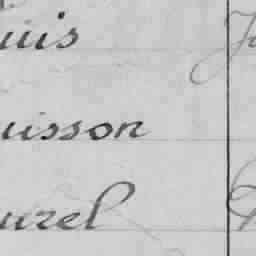 uis
uisson
urel